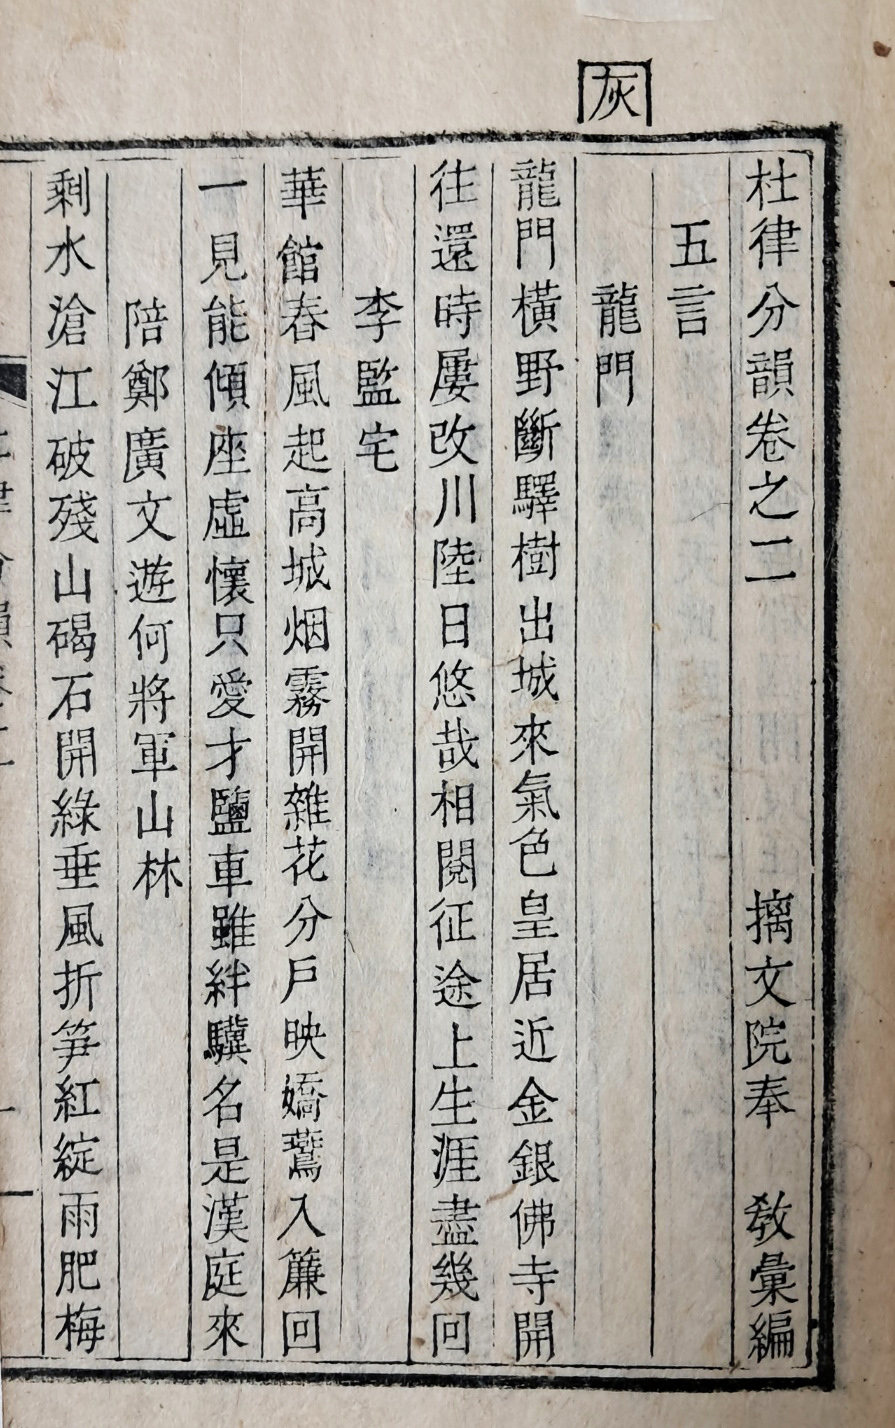 灰
杜律分韻卷之二 摛文院奉 教彙編
五言
龍門
龍門橫野斷驛樹出城來氣色皇居近金銀佛寺開
往還時屢改川陸日悠哉相閱征途上生涯盡幾回
李監宅
華館春風起高城烟霧開雜花分戶映嬌鷰入簾回
一見能傾座虛懷只愛才鹽車雖絆驥名是漢庭來
陪鄭廣文遊何將軍山林
剩水滄江破殘山碣石開綠垂風折笋紅綻雨肥梅